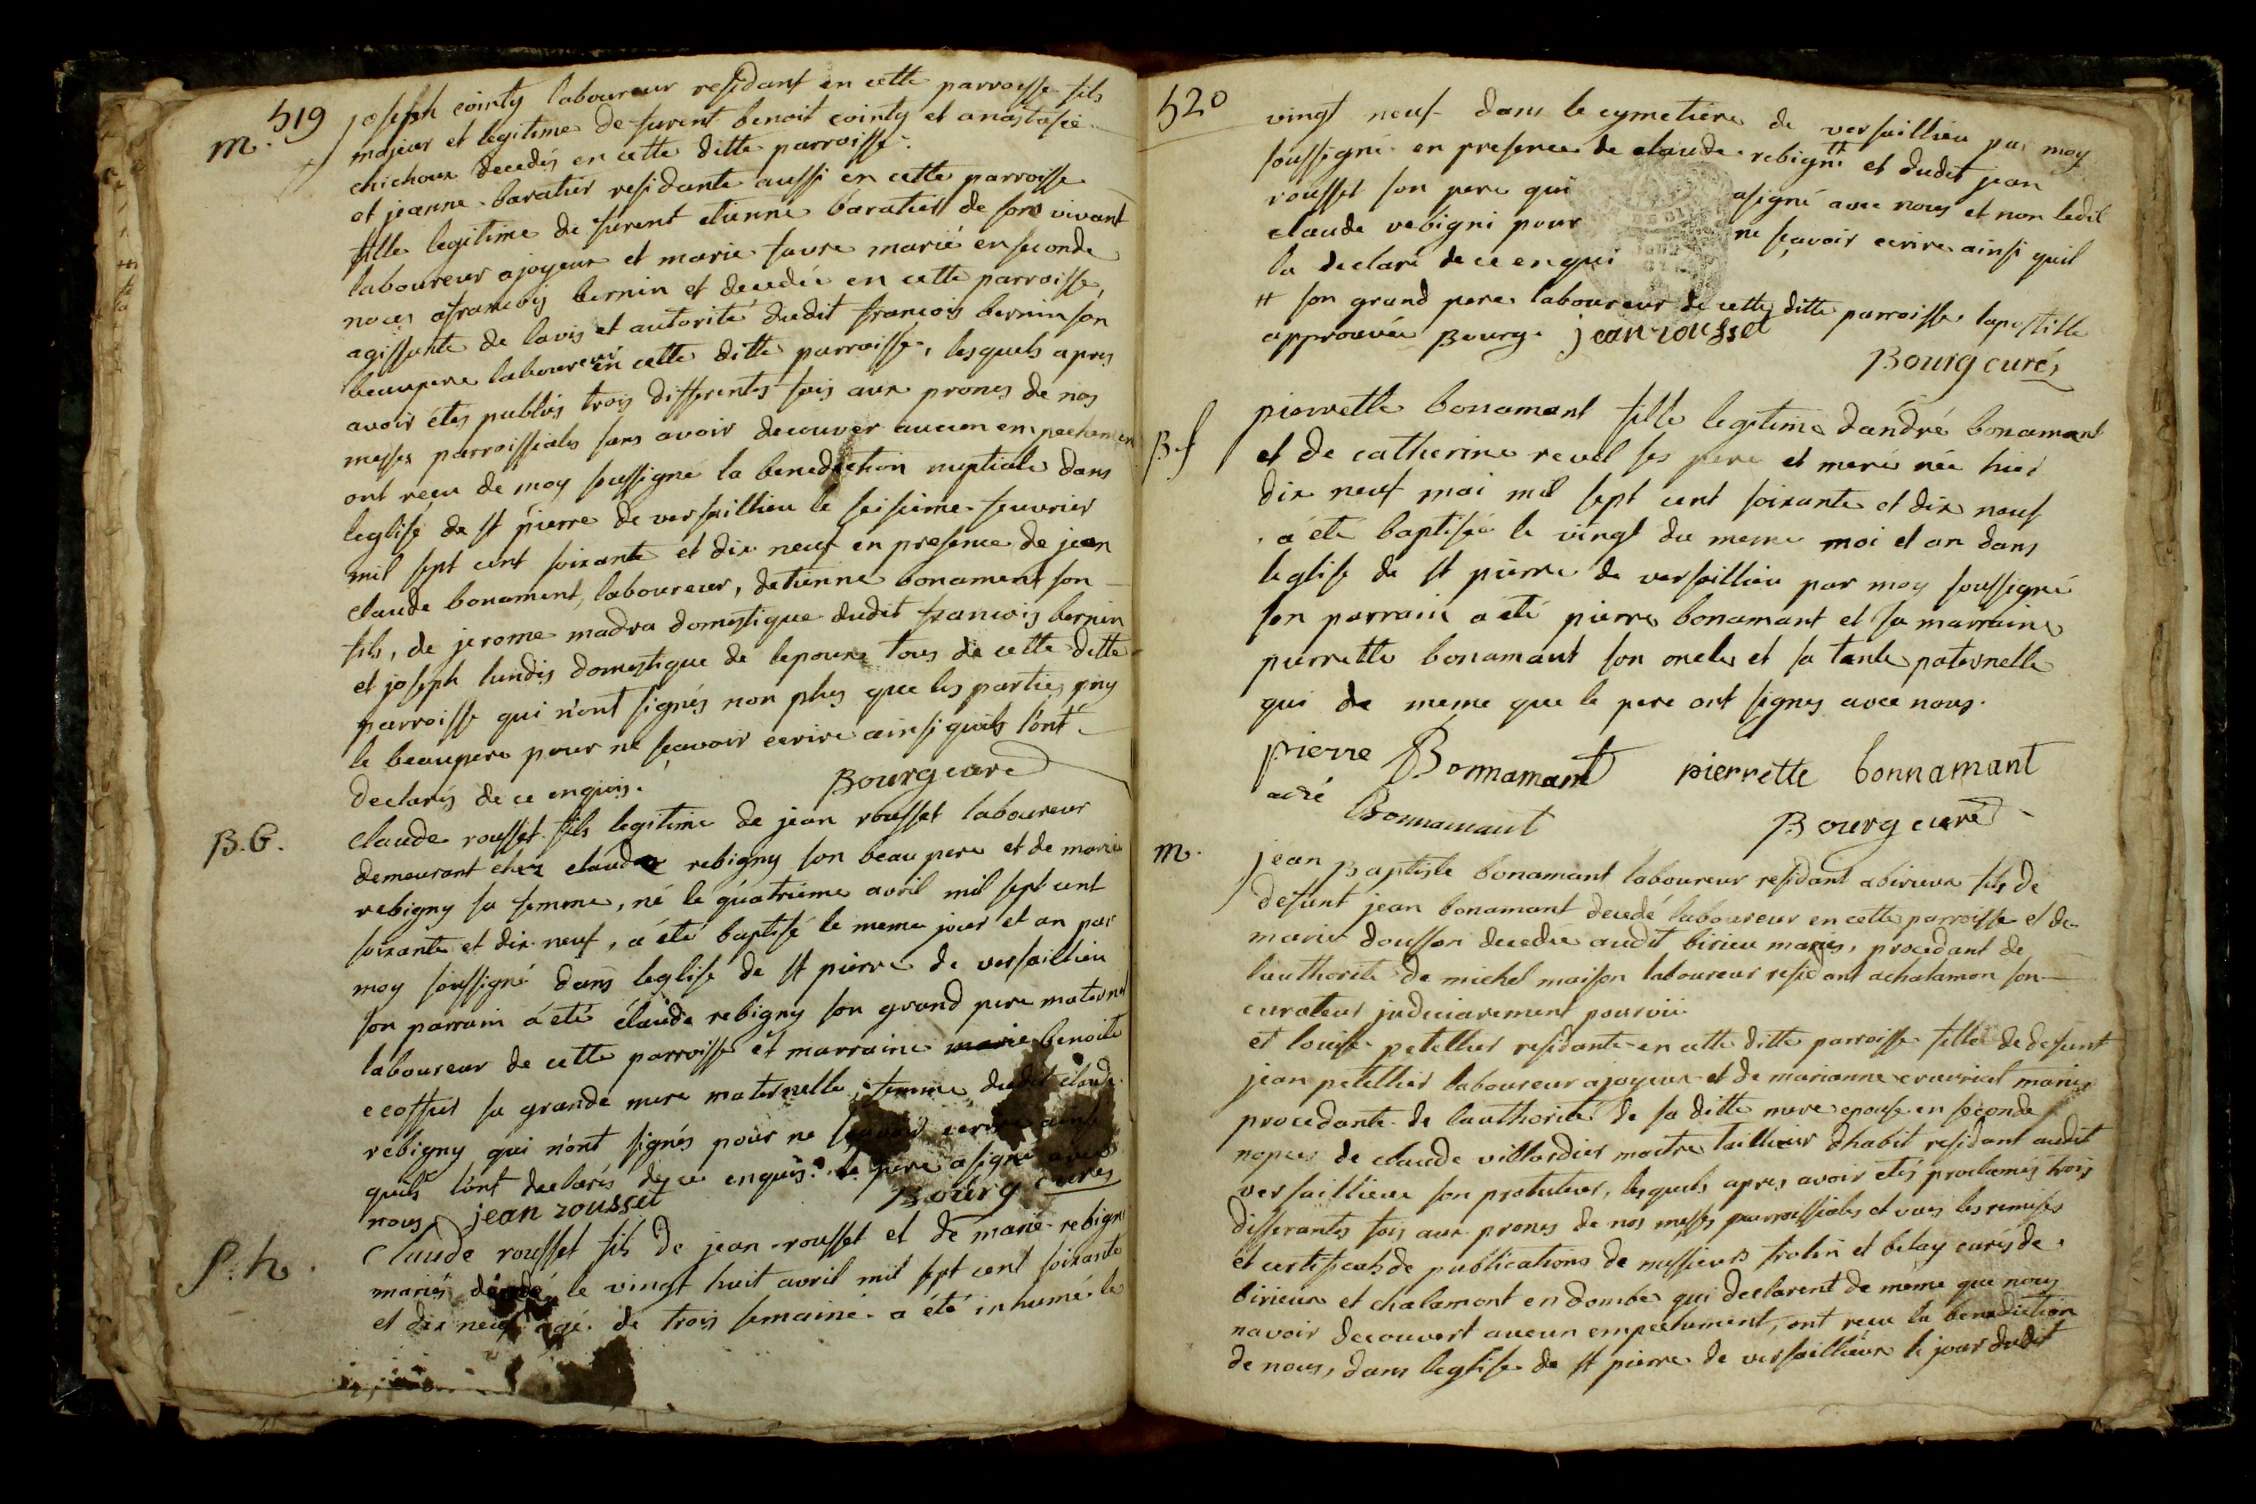 519
m.
joseph cointy laboureur residant en cette parroisse fils
majeur et legitime de furent benoit cointy et anastasie
chichoux decedés en cette ditte parroisse.
et jeanne baratier residante aussi en cette parroisse
fille legitime de furent etienne baratier de son vivant
laboureur ajoyeux et marie favre marié en seconde
noces afrancois bernin et decedée en cette parroisse,
agissante de lavis et autorité dudit francois bernin son
beaupere laboureur en cette ditte parroisse, lesquels apres
avoir étés publiés trois differentes fois aux prones de nos
messes parroissiales sans avoir decouver aucun empechemen
ont reçu de moy soussigné la benediction nuptiale dans
leglise de st pierre de versaillieu le seisieme feuvrier
mil sept cent soixante et dix neuf en presence de jean
claude bonament, laboureur, detienne bonament son
fils, de jerome madra domestique dudit francois bernin
et joseph lundis domestique de lepoux tous de cette ditte
parroisse qui n'ont signés non plus que les parties ny
le beaupere pour ne sçavoir ecrire ainsi quils l'ont
declarés de ce enquis.
Bourg curé
B.G.
claude rousset fils legitime de jean rousset laboureur
demeurant chez claude rebigny son beau pere et de marie
rebigny sa femme, né le quatrieme avril mil sept cent
soixante et dix neuf, a été baptisé le meme jour et an par
moy soussigné dans leglise de st pierre de versaillieu
son parrain a été claude rebigny son grand pere maternel
laboureur de cette parroisse et marraine marie benoite
ecossier sa grande mere maternelle, femme dudit claude
rebigny qui n'ont signés pour ne sçavoir ecrire ainsi
quils l'ont declarés de ce enquis. le pere a signé avec
nous jean rousset
Bourg curé
S.h.
Claude rousset fils de jean rousset et de marie rebigni
mariés décedé le vingt huit avril mil sept cent soixante
et dix neuf agé de trois semaine a été inhumé le
520
vingt neuf dans le cymetiere de versaillieu par moy
soussigné en presence de claude rebigni # et dudit jean
rousset son pere qui asigné avec nous et non ledit
claude rebigni pour ne sçavoir ecrire ainsi quil
la declaré de ce enqui
# son grand pere laboureur de cette ditte parroisse lapostille
approuvée Bourg. jean rousset
Bourg curé
B.f
pierrette bonamant fille legitime dandré bonamant
et de catherine revel ses pere et mere née hier
dix neuf mai mil sept cent soixante et dix neuf
a été baptisée le vingt du meme moi et an dans
leglise de st pierre de versaillieu par moy soussigné
son parrain a été pierre bonamant et sa marraine
pierrette bonamant son oncle et sa tante paternelle
qui de meme que le pere ont signés avec nous.
pierre Bonnamant pierrette bonnamant
adré Bonnamant
Bourg curé
m.
jean Baptiste bonamant laboureur residant abirieux fils de
defunt jean bonamant decedé laboureur en cette parroisse et de
marie dousson decedée audit birieu mariés, procedant de
lauthorité de michel maison laboureur residant achalamon son
curateur judiciairement pourvu
et louise petellier residante en cette ditte parroisse fille de defunt
jean petellier laboureur ajoyeux et de marianne cravriat mariés
procedante de lauthorité de sa ditte mere epouse en seconde
nopces de claude villardier maitre taillieur dhabit residant audit
versaillieux son protuteur, lesquels apres avoir étés proclamés trois
differantes fois aux prones de nos messes parroissiales et vu les remises
et certificats de publications de messieurs trolin et bilay curés de
birieux et chalamont en dombe qui declarent de meme que nous
navoir decouvert aucun empechement, ont reçu la benediction
de nous, dans leglise de st pierre de versaillieux le jour dudit